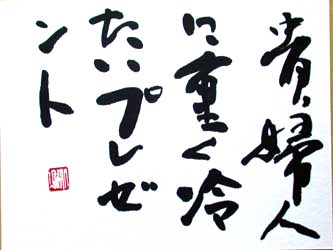 貴婦人
に重く冷
たいプレゼ
ント